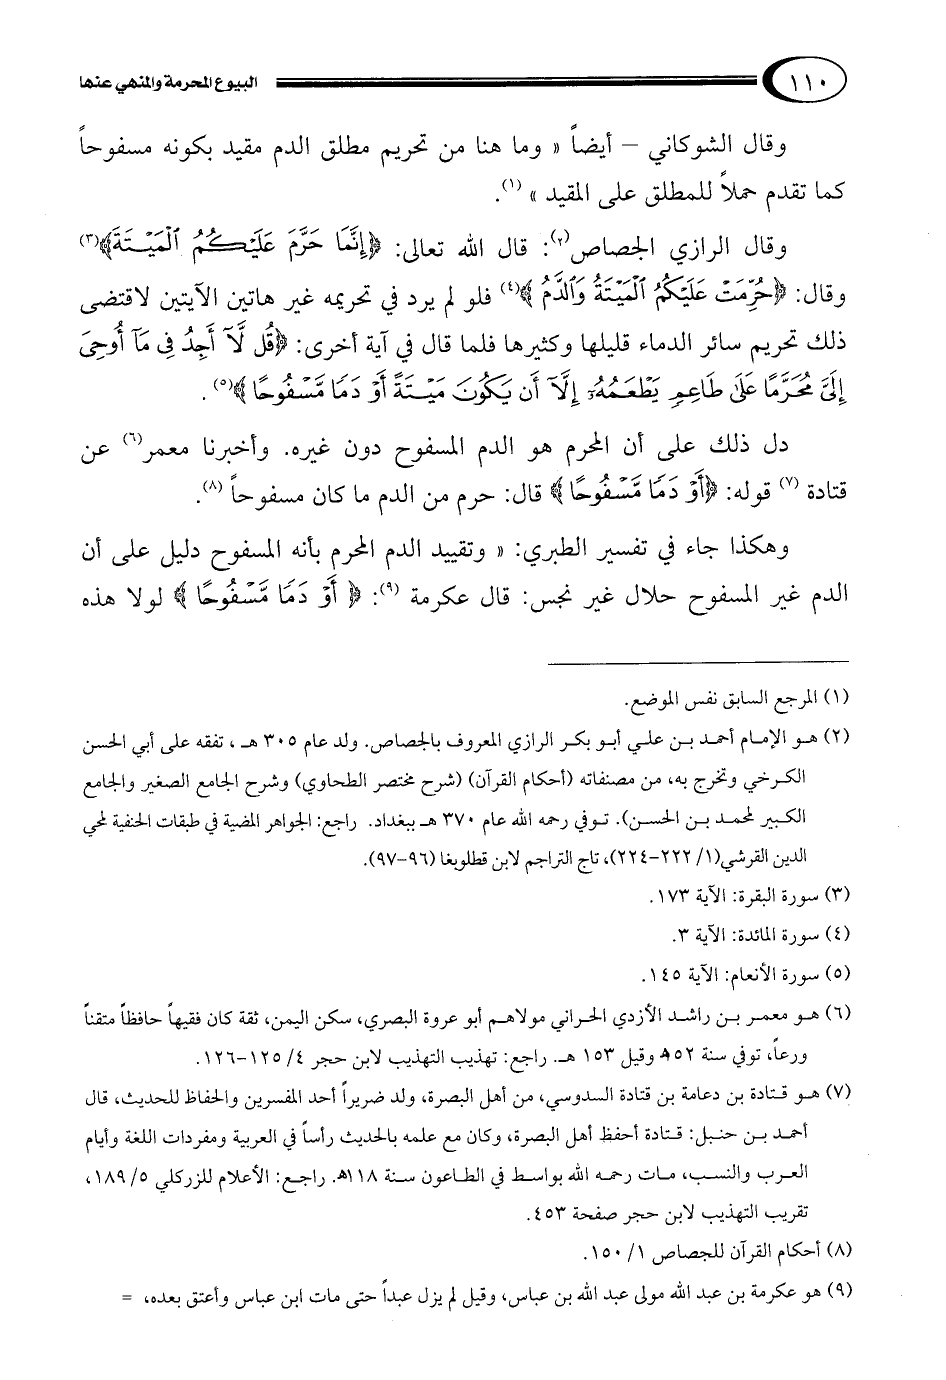 ١١٠ البيوع المحرمة والمنهي عنها
وقال الشوكاني – أيضاً « وما هنا من تحريم مطلق الدم مقيد بكونه مسفوحاً
كما تقدم حملاً للمطلق على المقيد » (١).
وقال الرازي الجصاص(٢): قال الله تعالى: ﴿إِنَّمَا حَرَّمَ عَلَيْكُمُ ٱلْمَيْتَةَ﴾(٣)
وقال: ﴿حُرِّمَتْ عَلَيْكُمُ ٱلْمَيْتَةُ وَٱلدَّمُ ﴾(٤) فلو لم يرد في تحريمه غير هاتين الآيتين لاقتضى
ذلك تحريم سائر الدماء قليلها وكثيرها فلما قال في آية أخرى: ﴿قُل لَّآ أَجِدُ فِى مَآ أُوحِىَ
إِلَىَّ مُحَرَّمًا عَلَىٰ طَاعِمٍ يَطْعَمُهُۥٓ إِلَّآ أَن يَكُونَ مَيْتَةً أَوْ دَمًا مَّسْفُوحًا ﴾(٥).
دل ذلك على أن المحرم هو الدم المسفوح دون غيره. وأخبرنا معمر(٦) عن
قتادة (٧) قوله: ﴿أَوْ دَمًا مَّسْفُوحًا ﴾ قال: حرم من الدم ما كان مسفوحاً (٨).
وهكذا جاء في تفسير الطبري: « وتقييد الدم المحرم بأنه المسفوح دليل على أن
الدم غير المسفوح حلال غير نجس: قال عكرمة (٩): ﴿ أَوْ دَمًا مَّسْفُوحًا ﴾ لولا هذه
(١) المرجع السابق نفس الموضع.
(٢) هو الإمام أحمد بن علي أبو بكر الرازي المعروف بالجصاص. ولد عام ٣٠٥ هـ ، تفقه على أبي الحسن
الكرخي وتخرج به، من مصنفاته (أحكام القرآن) (شرح مختصر الطحاوي) وشرح الجامع الصغير والجامع
الكبير لمحمد بن الحسن). توفي رحمه الله عام ٣٧٠ هـ ببغداد. راجع: الجواهر المضية في طبقات الحنفية لمحي
الدين القرشي(١/ ٢٢٢-٢٢٤)، تاج التراجم لابن قطلوبغا (٩٦-٩٧).
(٣) سورة البقرة: الآية ١٧٣.
(٤) سورة المائدة: الآية ٣.
(٥) سورة الأنعام: الآية ١٤٥.
(٦) هو معمر بن راشد الأزدي الحراني مولاهم أبو عروة البصري، سكن اليمن، ثقة كان فقيهاً حافظاً متقناً
ورعاً، توفي سنة ٥٢ه وقيل ١٥٣ هـ. راجع: تهذيب التهذيب لابن حجر ٤/ ١٢٥-١٢٦.
(٧) هو قتادة بن دعامة بن قتادة السدوسي، من أهل البصرة، ولد ضريراً أحد المفسرين والحفاظ للحديث، قال
أحمد بن حنبل: قتادة أحفظ أهل البصرة، وكان مع علمه بالحديث رأساً في العربية ومفردات اللغة وأيام
العرب والنسب، مات رحمه الله بواسط في الطاعون سنة ١١٨ه. راجع: الأعلام للزركلي ٥/ ١٨٩،
تقريب التهذيب لابن حجر صفحة ٤٥٣.
(٨) أحكام القرآن للجصاص ١/ ١٥٠.
(٩) هو عكرمة بن عبد الله مولى عبد الله بن عباس، وقيل لم يزل عبداً حتى مات ابن عباس وأعتق بعده، =